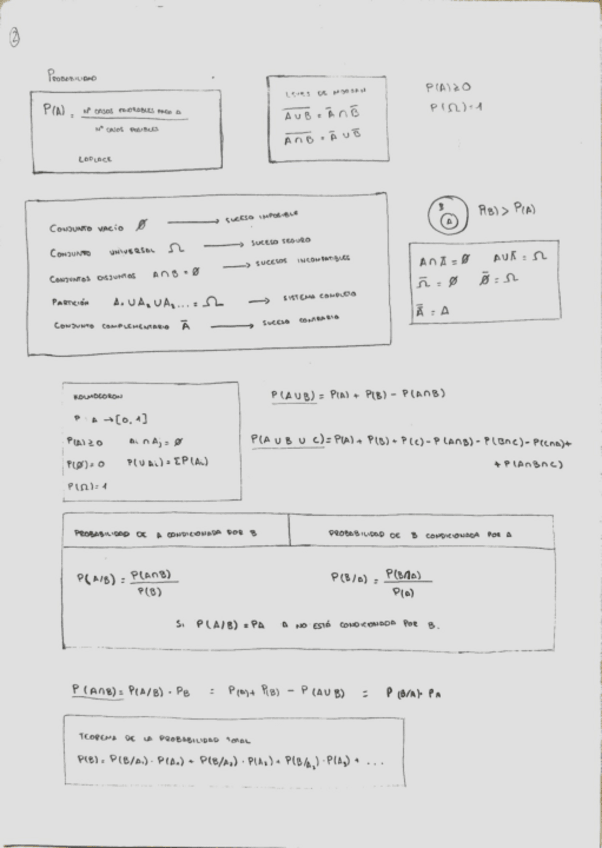 2
PROBABILIDAD
P(A) = Nº CASOS FAVORABLES PARA A / Nº CASOS POSIBLES
LAPLACE
LEYES DE MORGAN
\overline{A∪B} = Ā∩B̄
\overline{A∩B} = Ā∪B̄
P(A)≥0
P(Ω)=1
CONJUNTO VACÍO Ø → SUCESO IMPOSIBLE
CONJUNTO UNIVERSAL Ω → SUCESO SEGURO
CONJUNTOS DISJUNTOS A∩B=Ø → SUCESOS INCONTABLES
PARTICIÓN A₁∪A₂∪A₃...=Ω → SISTEMA COMPLETO
CONJUNTO COMPLEMENTARIO Ā → SUCESO CONTRARIO
B
A
P(B) > P(A)
A∩Ā=Ø A∪Ā=Ω
Ω̄=Ø Ø̄=Ω
=A
P A →[0,1]
P(A)≥0 Aᵢ∩Aⱼ=Ø
P(Ø)=0 P(∪Aᵢ)=ΣP(Aᵢ)
P(Ω)=1
P(A∪B) = P(A) + P(B) - P(A∩B)
P(A∪B∪C)=P(A)+P(B)+P(C)-P(A∩B)-P(B∩C)-P(C∩A)+
+P(A∩B∩C)
PROBABILIDAD DE A CONDICIONADA POR B
PROBABILIDAD DE B CONDICIONADA POR A
P(A/B) = P(A∩B) / P(B)
P(B/A) = P(B∩A) / P(A)
Si P(A/B)=PA A NO ESTÁ CONDICIONADA POR B.
P(A∩B)=P(A/B)·PB = P(A)+P(B)-P(A∪B) = P(B/A)·PA
TEOREMA DE LA PROBABILIDAD TOTAL
P(B)=P(B/A₁)·P(A₁)+P(B/A₂)·P(A₂)+P(B/A₃)·P(A₃)+...